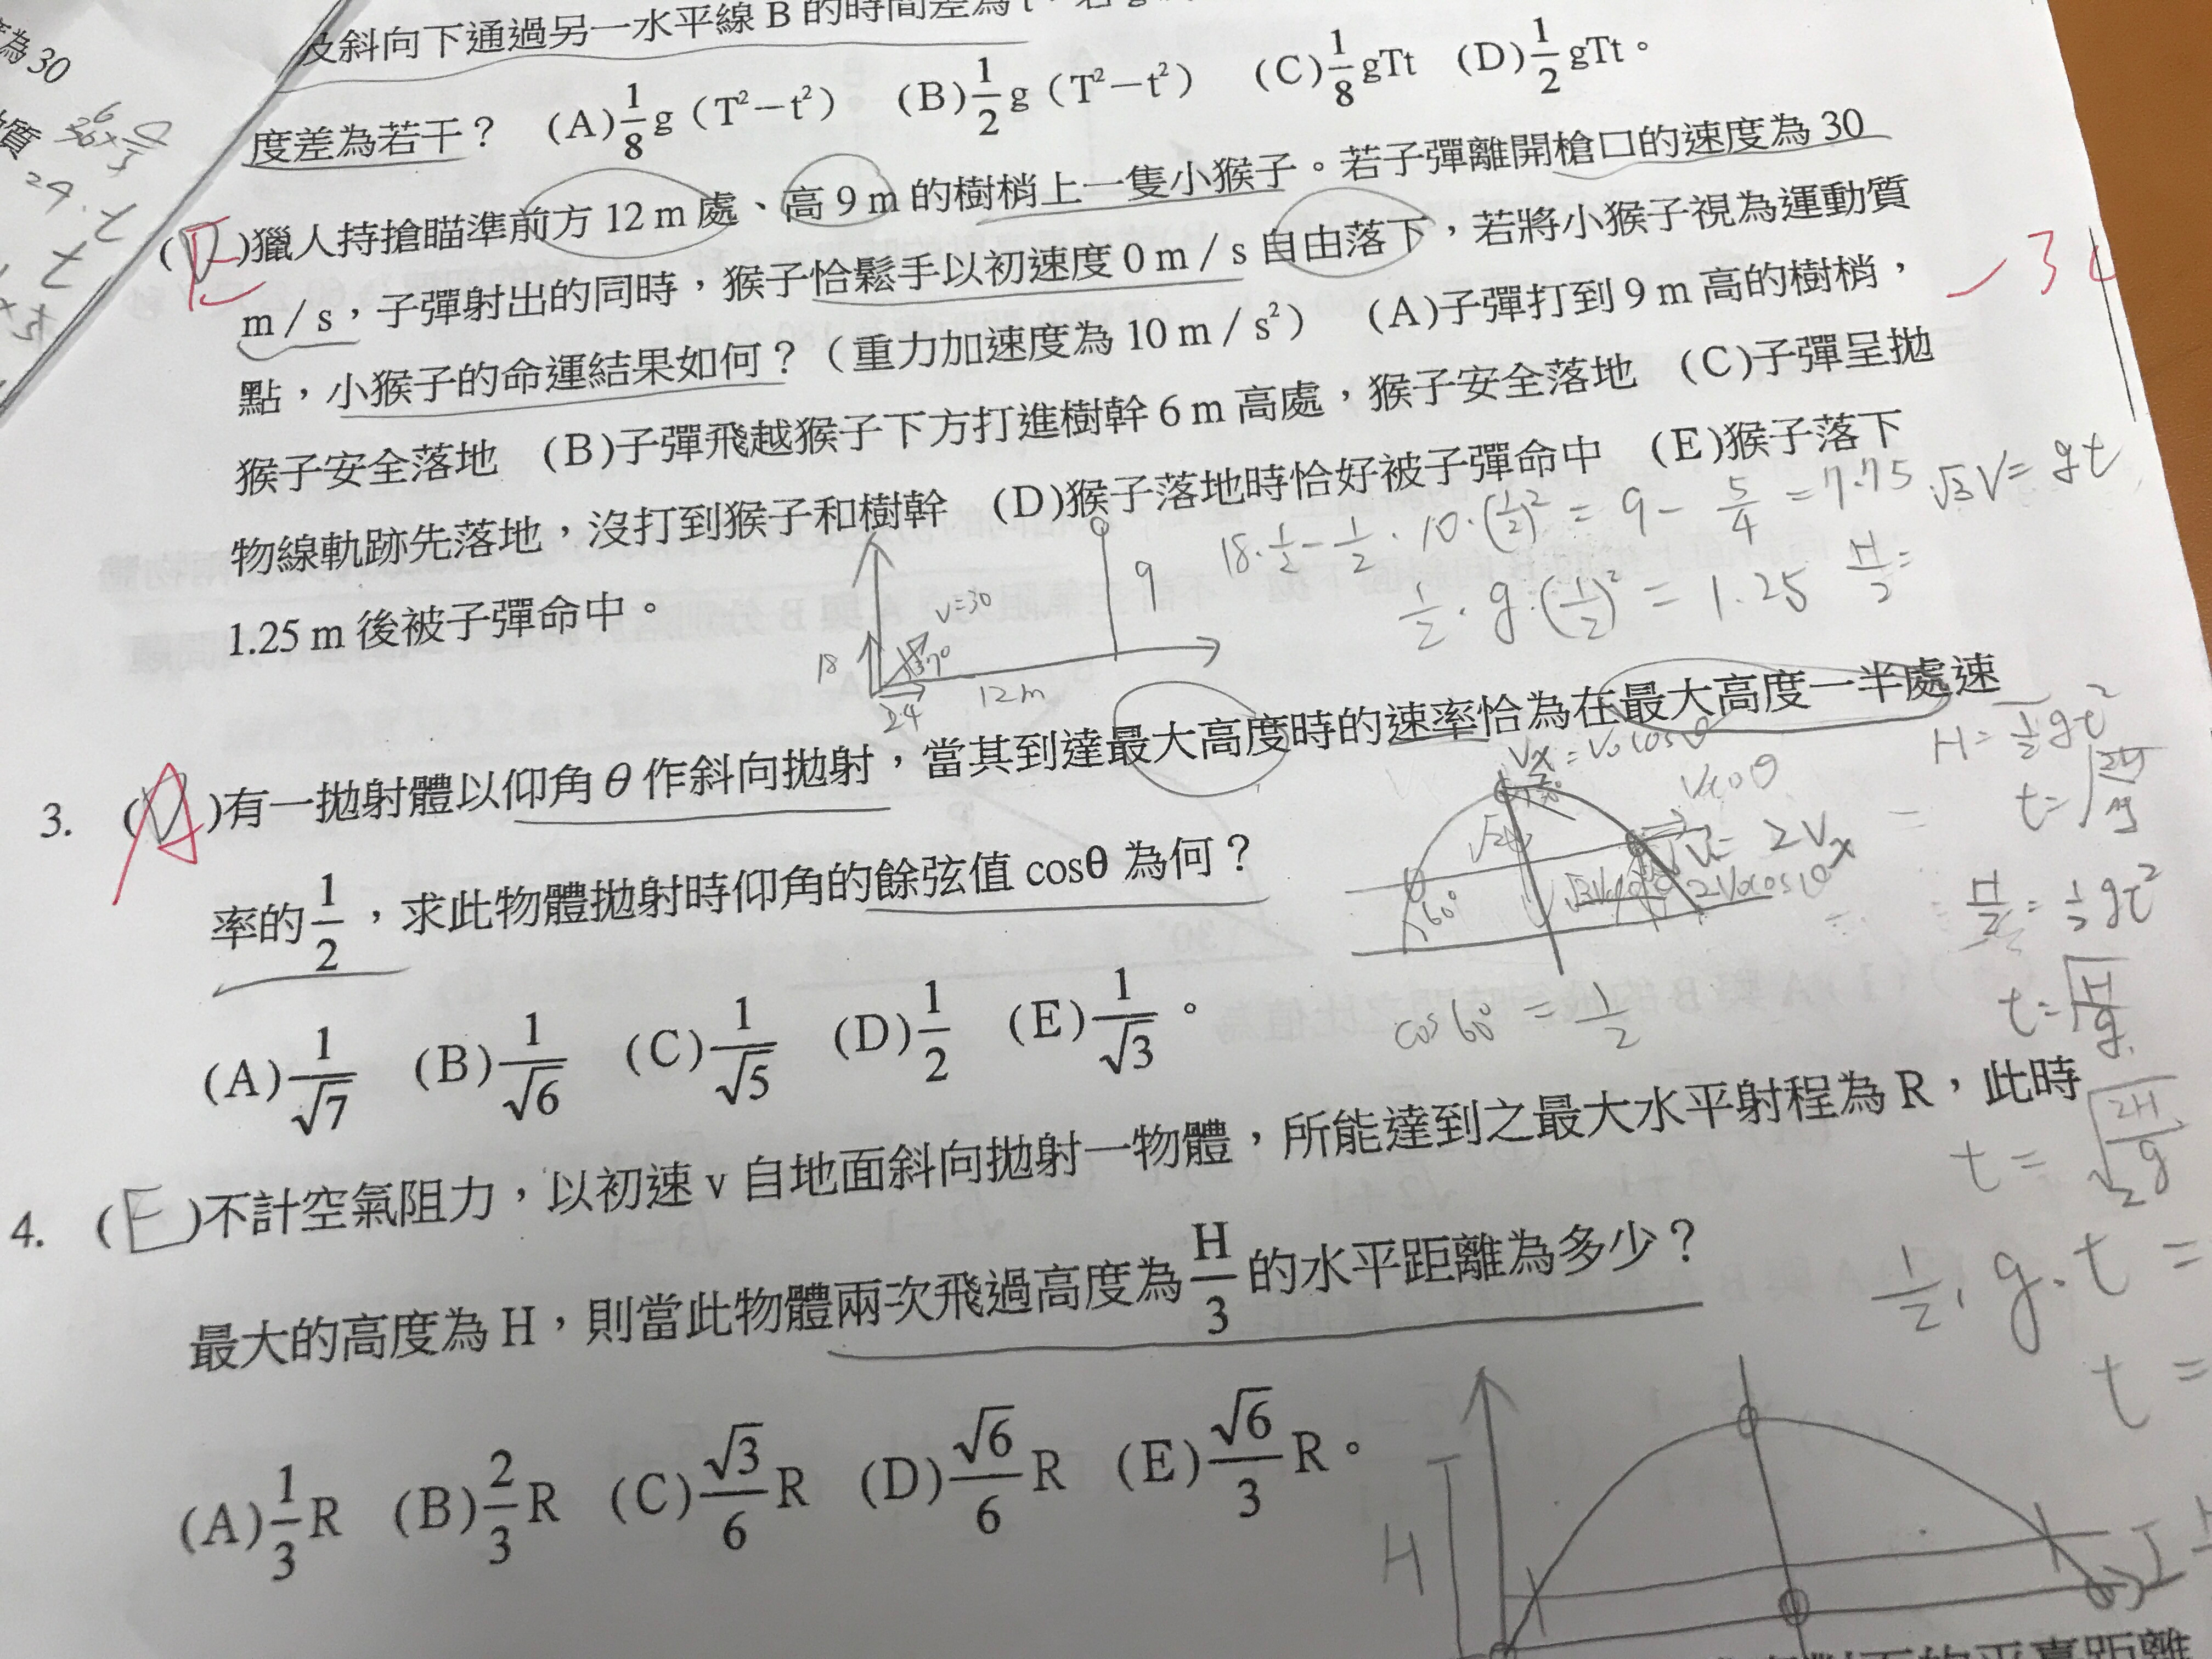 為30
質
及斜向下通過另一水平線B的時間差為t
度差為若干？ (A)1/8 g（T²－t²） (B)1/2 g（T²－t²） (C)1/8 gTt (D)1/2 gTt。
( E )獵人持搶瞄準前方12 m處、高9 m的樹梢上一隻小猴子。若子彈離開槍口的速度為30
m／s，子彈射出的同時，猴子恰鬆手以初速度0 m／s自由落下，若將小猴子視為運動質
點，小猴子的命運結果如何？（重力加速度為10 m／s²） (A)子彈打到9 m高的樹梢，
猴子安全落地 (B)子彈飛越猴子下方打進樹幹6 m高處，猴子安全落地 (C)子彈呈拋
物線軌跡先落地，沒打到猴子和樹幹 (D)猴子落地時恰好被子彈命中 (E)猴子落下
1.25 m後被子彈命中。
18·1/2－1/2·10·(1/2)²＝9－5/4＝7.75
√3V＝gt
1/2·g·(1/2)²＝1.25
H/2＝
v=30
37°
18
24
12m
9
3. ( A )有一拋射體以仰角θ作斜向拋射，當其到達最大高度時的速率恰為在最大高度一半處速
率的1/2，求此物體拋射時仰角的餘弦值cosθ為何？
(A)1/√7 (B)1/√6 (C)1/√5 (D)1/2 (E)1/√3。
Vx＝V₀cosθ
2Vx
60°
cos60°＝1/2
H＝1/2gt²
t＝√2H/g
H/2＝1/2gt²
t＝√H/g
4. ( E )不計空氣阻力，以初速v自地面斜向拋射一物體，所能達到之最大水平射程為R，此時
最大的高度為H，則當此物體兩次飛過高度為H/3的水平距離為多少？
(A)1/3 R (B)2/3 R (C)√3/6 R (D)√6/6 R (E)√6/3 R。
1/2·g·t＝
t＝
H